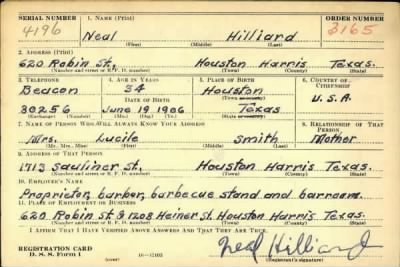 SERIAL NUMBER 1. NAME (Print) ORDER NUMBER
4196 Neal Hilliard 3165
(First) (Middle) (Last)
2. ADDRESS (Print)
620 Robin St., Houston Harris Texas.
(Number and street or R. F. D. number) (Town) (County) (State)
3. TELEPHONE 4. AGE IN YEARS 5. PLACE OF BIRTH 6. COUNTRY OF CITIZENSHIP
Beacon 34 Houston
DATE OF BIRTH (Town or county)
30256 June 19 1906 Texas U.S.A.
(Exchange) (Number) (Mo.) (Day) (Yr.) (State or country)
7. NAME OF PERSON WHO WILL ALWAYS KNOW YOUR ADDRESS 8. RELATIONSHIP OF THAT PERSON
Mrs. Lucile Smith Mother
(Mr., Mrs., Miss) (First) (Middle) (Last)
9. ADDRESS OF THAT PERSON
1713 Sauliner St., Houston Harris Texas.
(Number and street or R. F. D. number) (Town) (County) (State)
10. EMPLOYER'S NAME
Proprietor, barber, barbecue stand and barroom.
11. PLACE OF EMPLOYMENT OR BUSINESS
620 Robin St. & 1208 Heiner St. Houston Harris Texas.
(Number and street or R. F. D. number) (Town) (County) (State)
I AFFIRM THAT I HAVE VERIFIED ABOVE ANSWERS AND THAT THEY ARE TRUE.
REGISTRATION CARD
D. S. S. Form 1 (over) Neal Hilliard
(Registrant's signature)